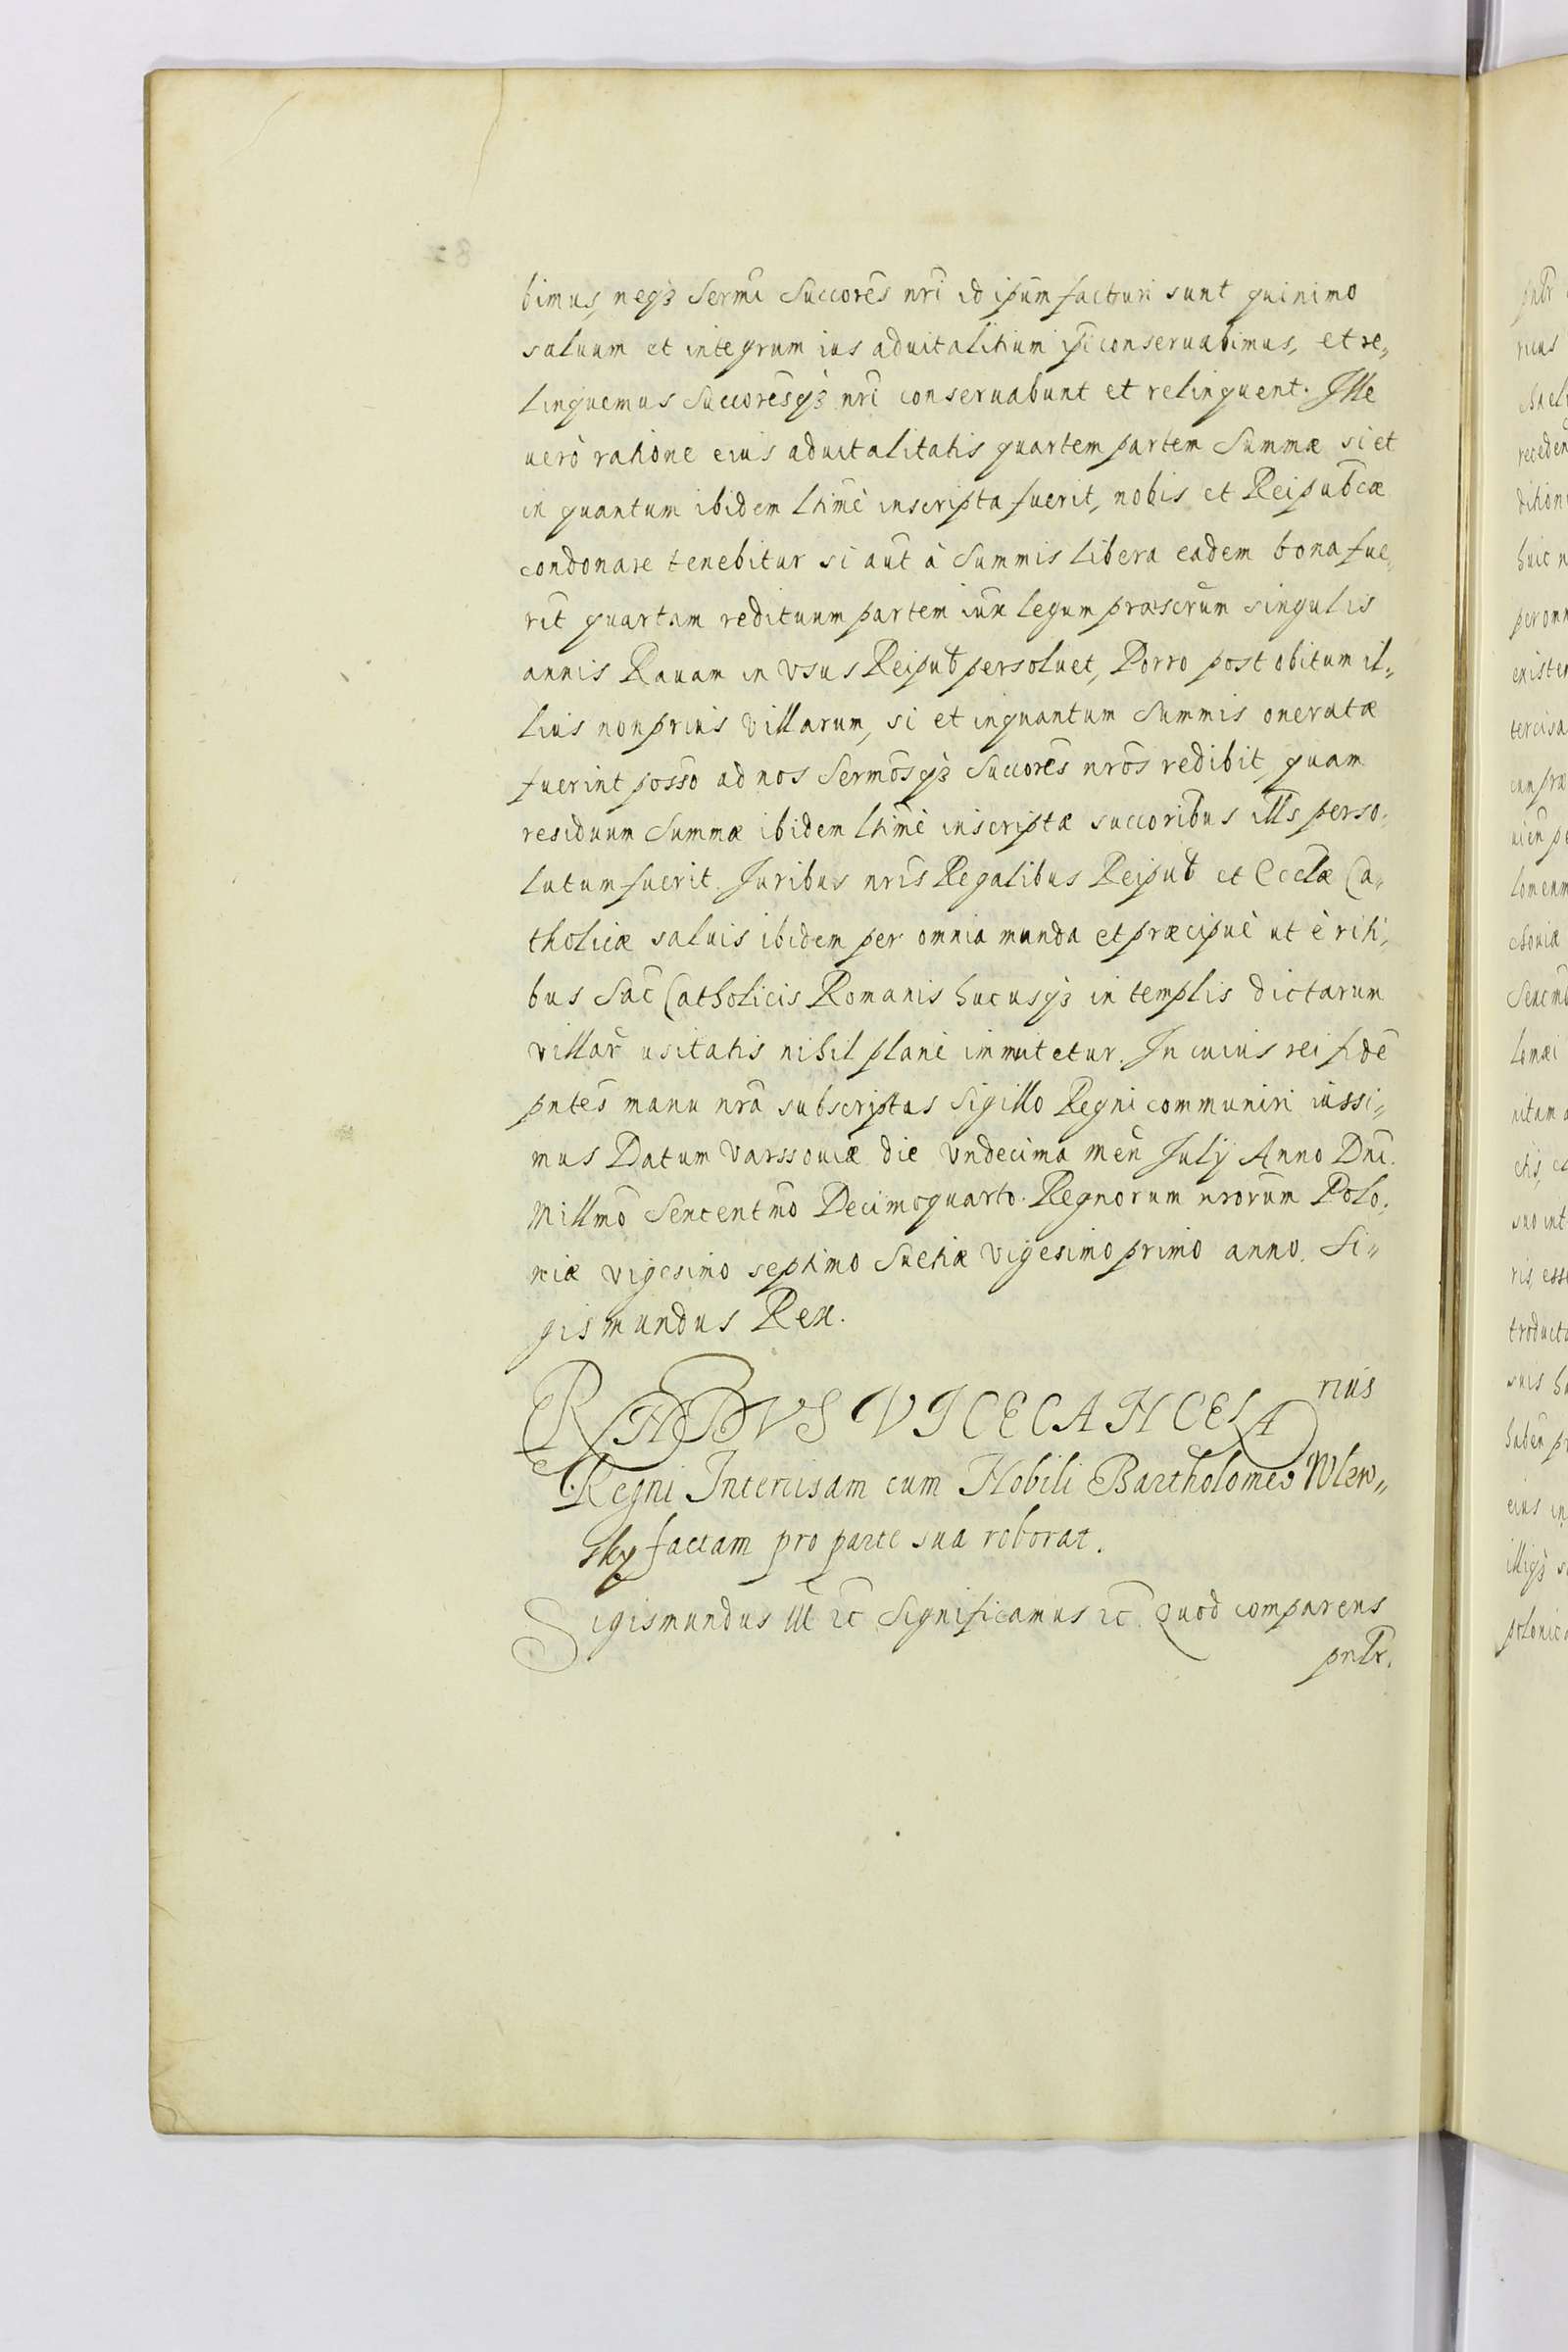 bimus, neqȝ Sermi Succorēs nr̄i id ipsum facturi sunt quinimo
saluum et integrum ius aduitalitium ip̄i conseruabimus, et re„
linquemus Succorēsqȝ nr̄i conseruabunt et relinquent. Ille
uerò ratione eius aduitalitatis quartem partem Summæ si et
in quantum ibidem Ltimè inscripta fuerit, nobis et Reipub̄cæ
condonare tenebitur si aut̄ à Summis libera eadem bona fue„
rit quartam redituum partem iux̄ legum præscr̄um singulis
annis Rauam in Vsus Reipub̄ persoluet, Porro post obitum il„
lius non prius Villarum, si et inquantum Summis oneratæ
fuerint posso ad nos Sermōsqȝ Succorēs nrōs redibit, quam
residuum Summæ ibidem Ltimè inscriptæ succoribus ill̄s perso„
lutum fuerit. Juribus nrīs Regalibus Reipub̄ et Eccl̄æ Ca„
tholicæ saluis ibidem per omnia manda et præcipuè ut è riti„
bus Sac̄ Catholicis Romanis hucusqȝ in templis dictarum
villar̄ usitatis nihil planè immutetur. In cuius rei fidē
pntēs manu nrā subscriptas Sigillo Regni communiri iussi„
mus Datum Varssouiæ die Vndecima Men̄ July Anno Dnī.
Millmō Sexcentmō Decimoquarto. Regnorum nrōrum Polo„
niæ Vigesimo septimo Suetiæ Vigesimo primo anno. Si„
gismundus Rex.
VICECANCELArius
Regni Intercisam cum Nobili Bartholomeo Wlew„
sky factam pro parte sua roborat.
Sigismundus III ꝛc̄ Significamus ꝛc̄. Quod comparens
pnlr̄.